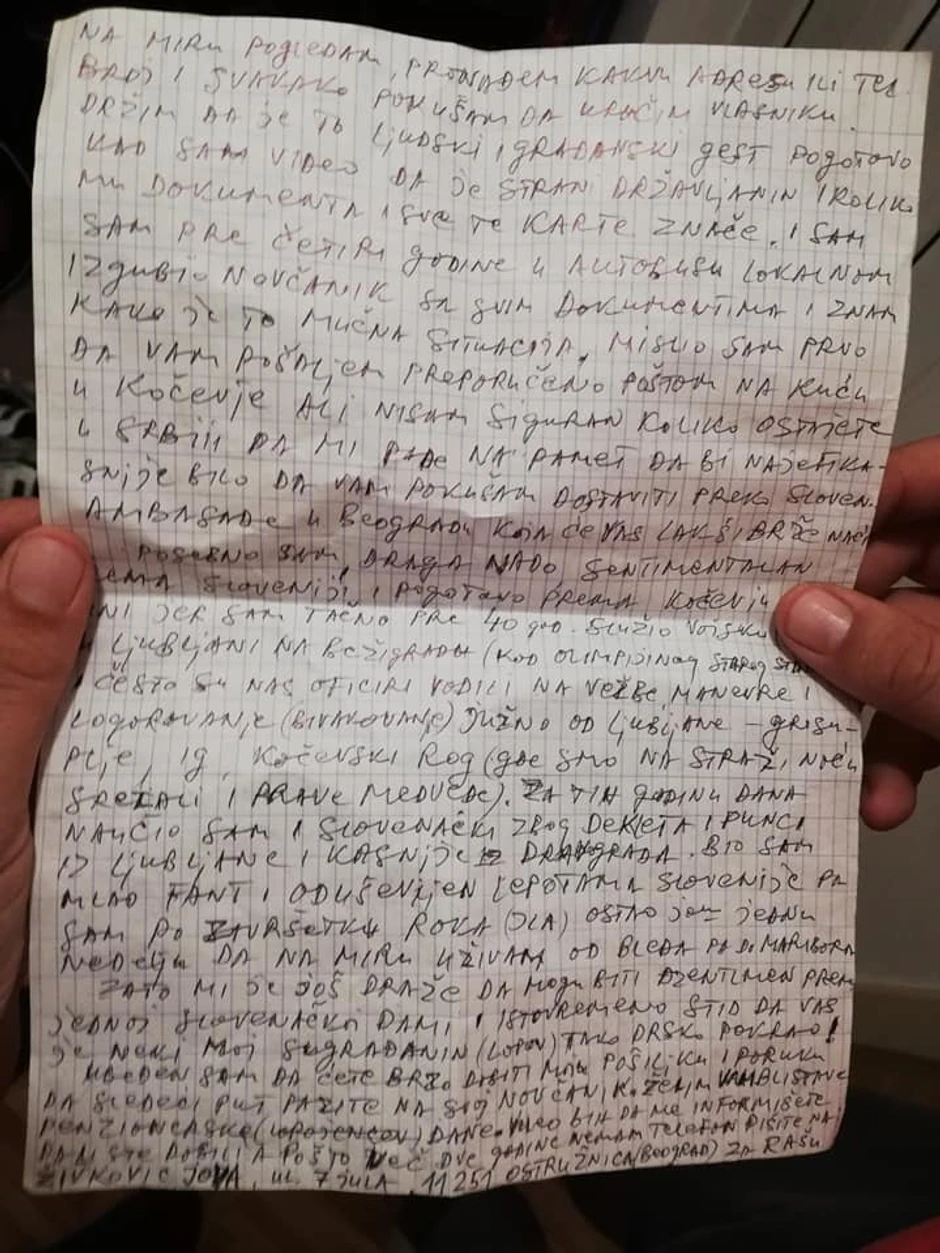 NA MIRU POGLEDAM, PRONAĐEM KAKVU ADRESU ILI TEL.
BROJ I SVAKAKO POKUŠAM DA VRAĆIM VLASNIKU.
DRŽIM DA JE TO LJUDSKI I GRAĐANSKI GEST POGOTOVO
KAD SAM VIDEO DA JE STRANI DRŽAVLJANIN I KOLIKO
MU DOKUMENTA I SVE TE KARTE ZNAČE. I SAM
SAM PRE ČETIRI GODINE U AUTOBUSU LOKALNOM
IZGUBIO NOVČANIK SA SVIM DOKUMENTIMA I ZNAM
KAKO JE TO MUČNA SITUACIJA. MISLIO SAM PRVO
DA VAM POŠALJEM PREPORUČENO POŠTOM NA KUĆU
U KOČEVJE ALI NISAM SIGURAN KOLIKO OSTAJETE
U SRBIJI DA MI PADE NA PAMET DA BI NAJEFIKA-
SNIJE BILO DA VAM POKUŠAM DOSTAVITI PREKO SLOVEN.
AMBASADE U BEOGRADU KOJA ĆE VAS LAKŠ I BRŽE NAĆI
POSEBNO SAM, DRAGA NADO SENTIMENTALAN
EMA SLOVENIJI, I POGOTOVO PREMA KOČEVJU
NI JER SAM TAČNO PRE 40 GOD. SLUŽIO VOJSKU
U LJUBLJANI NA BEŽIGRADU (KOD OLIMPIJINOG STAROG
I ČESTO SU NAS OFICIRI VODILI NA VEŽBE, MANEVRE I
LOGOROVANJE (BIVAKOVANJE) JUŽNO OD LJUBLJANE - GROSU-
PLJE, IG, KOČEVSKI ROG (GDE SMO NA STRAŽI NOĆU
SRETALI I PRAVE MEDVEDE). ZA TIH GODINU DANA
NAUČIO SAM I SLOVENAČKI ZBOG DEKLETA I PUNCI
IZ LJUBLJANE I KASNIJE IZ DRAVGRADA. BIO SAM
MLAD FANT I ODUŠEVLJEN LEPOTAMA SLOVENIJE PA
SAM PO ZAVRŠETKU ROKA (JLA) OSTAO JOŠ JEDNU
NEDELJU DA NA MIRU UŽIVAM OD BLEDA PA DO MARIBORA
ZATO MI JE JOŠ DRAŽE DA MOGU BITI DŽENTLMEN PREMA
JEDNOJ SLOVENAČKOJ DAMI I ISTOVREMENO STID DA VAS
JE NEKI MOJ SUGRAĐANIN (LOPOV) TAKO DRSKO POKRAO!
UBEĐEN SAM DA ĆETE BRZO DOBITI MOJU POŠILJKU I PORUKU
DA SLEDEĆI PUT PAZITE NA SVOJ NOVČANIK. ŽELIM VAM BLISTAVE
PENZIONERSKE DANE. VOLEO BIH DA ME INFORMIŠETE
DA STE DOBILI A POŠTO VEĆ DVE GODINE NEMAM TELEFON PIŠITE NA:
ŽIVKOVIĆ JOVA, UL. 7 JULA, 11251 OSTRUŽNICA (BEOGRAD) ZA RAŠU